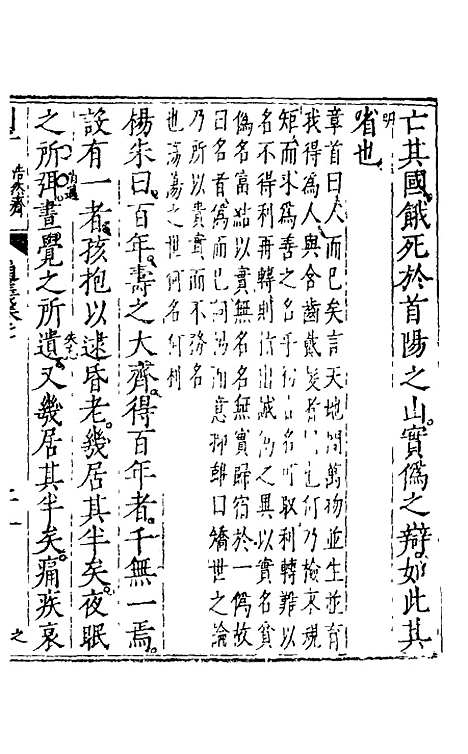 亡其國餓死於首陽之山實偽之辯如此其
省也
章首曰人而已矣言天地間萬物並生並育
我得為人與含齒戴髮者何乃檢束規
矩而求為善之名乎名可取利轉難以
名不得利再轉則指出誠偽之異以實名貧
偽名富實無名名無實歸宿於一偽故
曰名者偽而已意抑朝曰矯世之論
乃所以貴實而不務名
也蕩蕩之世何名何利
楊朱曰百年壽之大齊得百年者千無一焉
設有一者孩抱以逮昏老幾居其半矣夜眠
之所弭晝覺之所遺又幾居其半矣痛疾哀